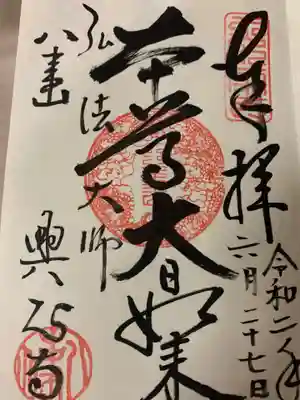 奉拝
令和二年
六月二十七日
本尊大日如来
弘法大師
八事山 興正寺